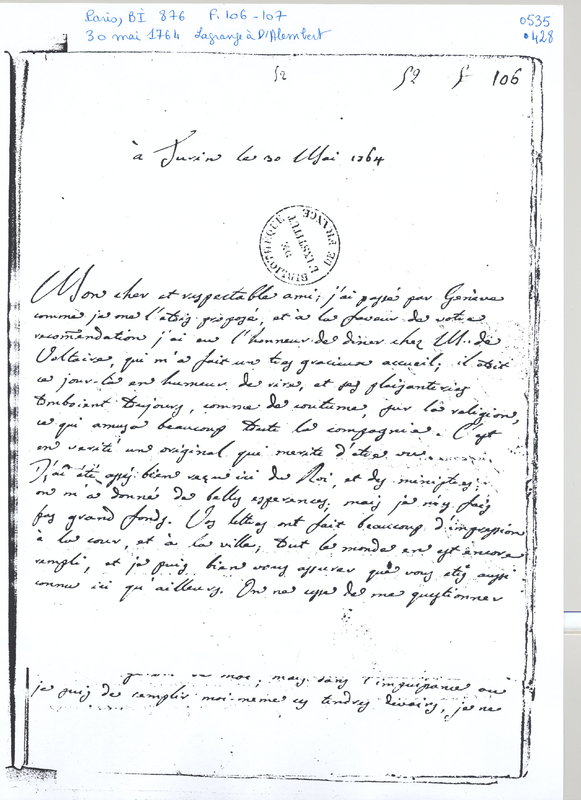 Paris, BI 876 F. 106-107
30 mai 1764 Lagrange à D'Alembert
0535
0428
52
52 f 106
à Turin le 30 Mai 1764
BIBLIOTHEQUE DE L'INSTITUT DE FRANCE
Mon cher et respectable ami; j'ai passé par Genève
comme je me l'etois proposé, et à la faveur de votre
recomendation j'ai eu l'honneur de diner chez M. de
Voltaire, qui m'a fait un tres gracieux accueil; il étoit
ce jour-là en humeur de rire, et ses plaisanteries
tomboient toujours, comme de coutume, sur la religion,
ce qui amusa beaucoup toute la compagnie. C'est
en verité un original qui merite d'etre vu.
J'ai été assés bien reçu ici du Roi, et des ministres;
on m'a donné de belles esperances, mais je n'y fais
pas grand fonds. Vos lettres ont fait beaucoup d'impression
à la cour, et à la ville; tout le monde en est encore
rempli, et je puis bien vous assurer que vous etes aussi
connu ici qu'ailleurs. On ne cesse de me questionner
moi; mais dans l'impuissance où
je puis de remplir moi-meme ces tendres devoirs, je ne